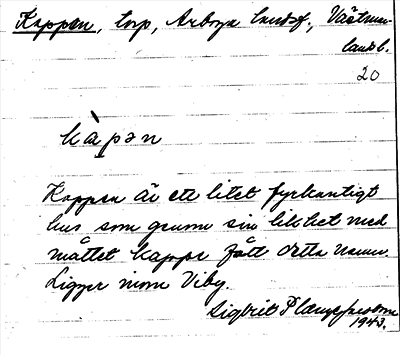 Kappen, torp, Arboga landsf., Västman-
lands l.
20
kàpən
Kappen är ett litet fyrkantigt
hus som genom sin likhet med
måttet kappe fått detta namn.
Ligger inom Viby.
Sigbrit Plænge Jacobson
1943.